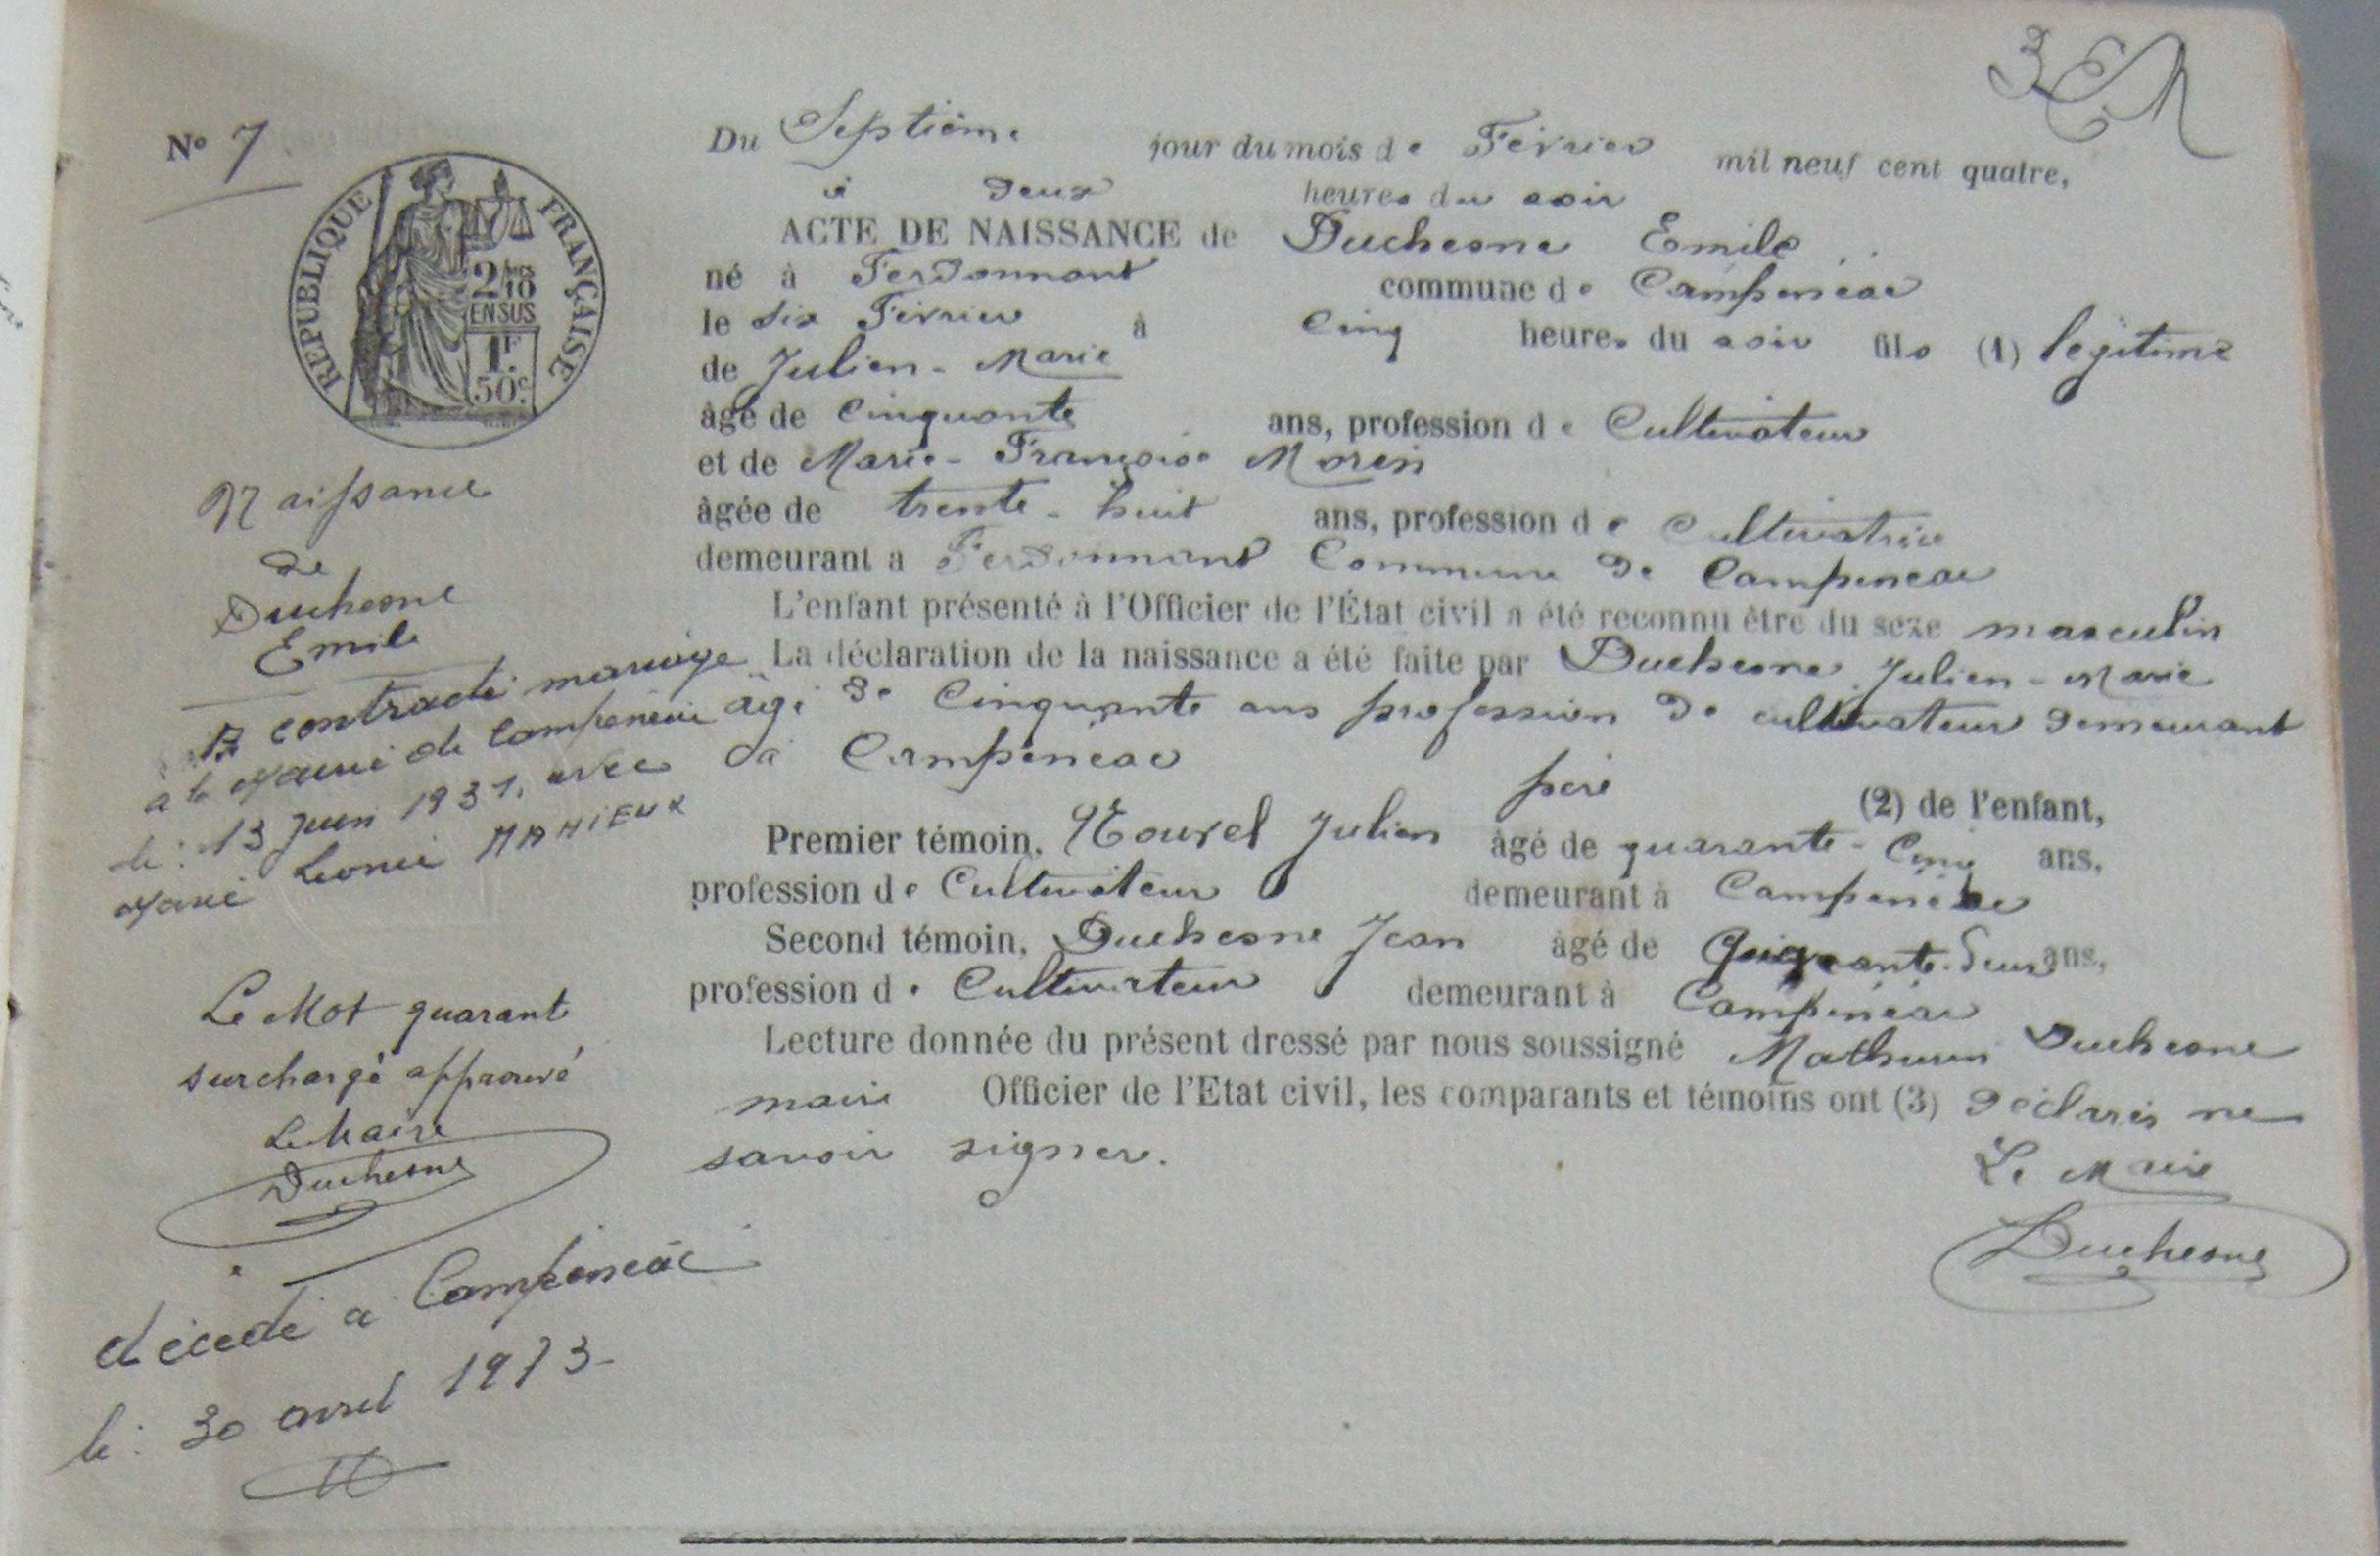 3
N° 7
REPUBLIQUE FRANÇAISE
2/10 EN SUS
1F. 50c.
Naissance
de
Duchesne
Emile
A contracté mariage
à la Mairie de Campénéac
le : 13 juin 1931, avec
Marie Léonie MAHIEUX
Le Mot quarant
surchargé approuvé
Le Maire
Duchesne
décédé à Campénéac
le : 30 avril 1973
Du Septième jour du mois de Février mil neuf cent quatre,
à Deux heures du soir
ACTE DE NAISSANCE de Duchesne Emile
né à Ferdonnant commune de Campénéac
le Six Février à Cinq heures du soir fils (1) légitime
de Julien-Marie
âgé de Cinquante ans, profession de Cultivateur
et de Marie-Françoise Morin
âgée de trente-huit ans, profession de Cultivatrice
demeurant à Ferdonnant Commune de Campénéac
L'enfant présenté à l'Officier de l'État civil a été reconnu être du sexe masculin
La déclaration de la naissance a été faite par Duchesne Julien-Marie
âgé de Cinquante ans profession de cultivateur demeurant
à Campénéac père (2) de l'enfant,
Premier témoin, Julien âgé de quarante-Cinq ans,
profession de Cultivateur demeurant à Campénéac
Second témoin, Duchesne Jean âgé de ans,
profession de Cultivateur demeurant à Campénéac
Lecture donnée du présent dressé par nous soussigné Mathurin Duchesne
maire Officier de l'Etat civil, les comparants et témoins ont (3) déclarés ne
savoir signer.
Le Maire
Duchesne